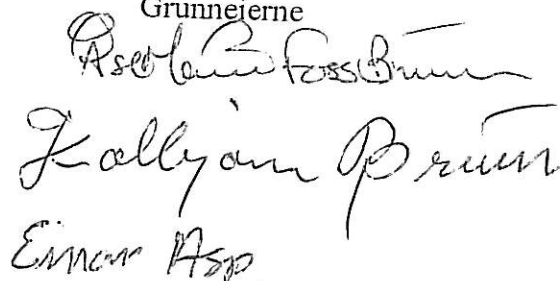 Grunneierne
Åse Marie Foss Bruun
Kolbjørn Bruun
Einar Asp